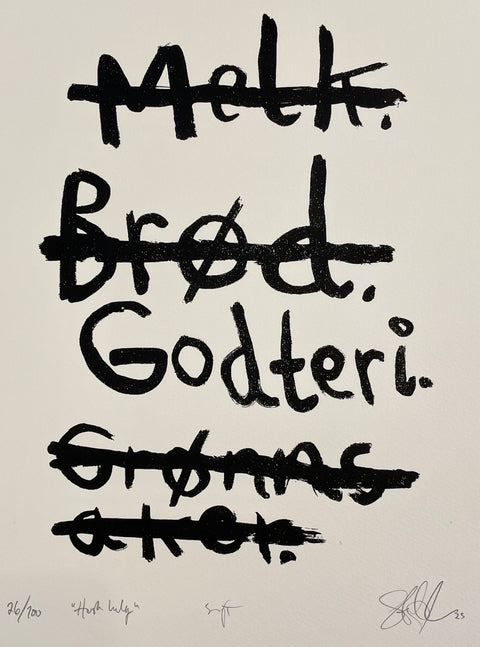 Melk.
Brød.
Godteri.
Grønns
aker.
26/100 "Husk helg" 25